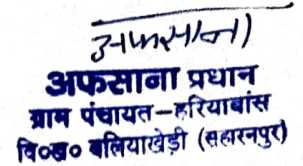 अफसाना
अफसाना प्रधान
ग्राम पंचायत-हरियाबांस
वि०ख० बलियाखेड़ी (सहारनपुर)